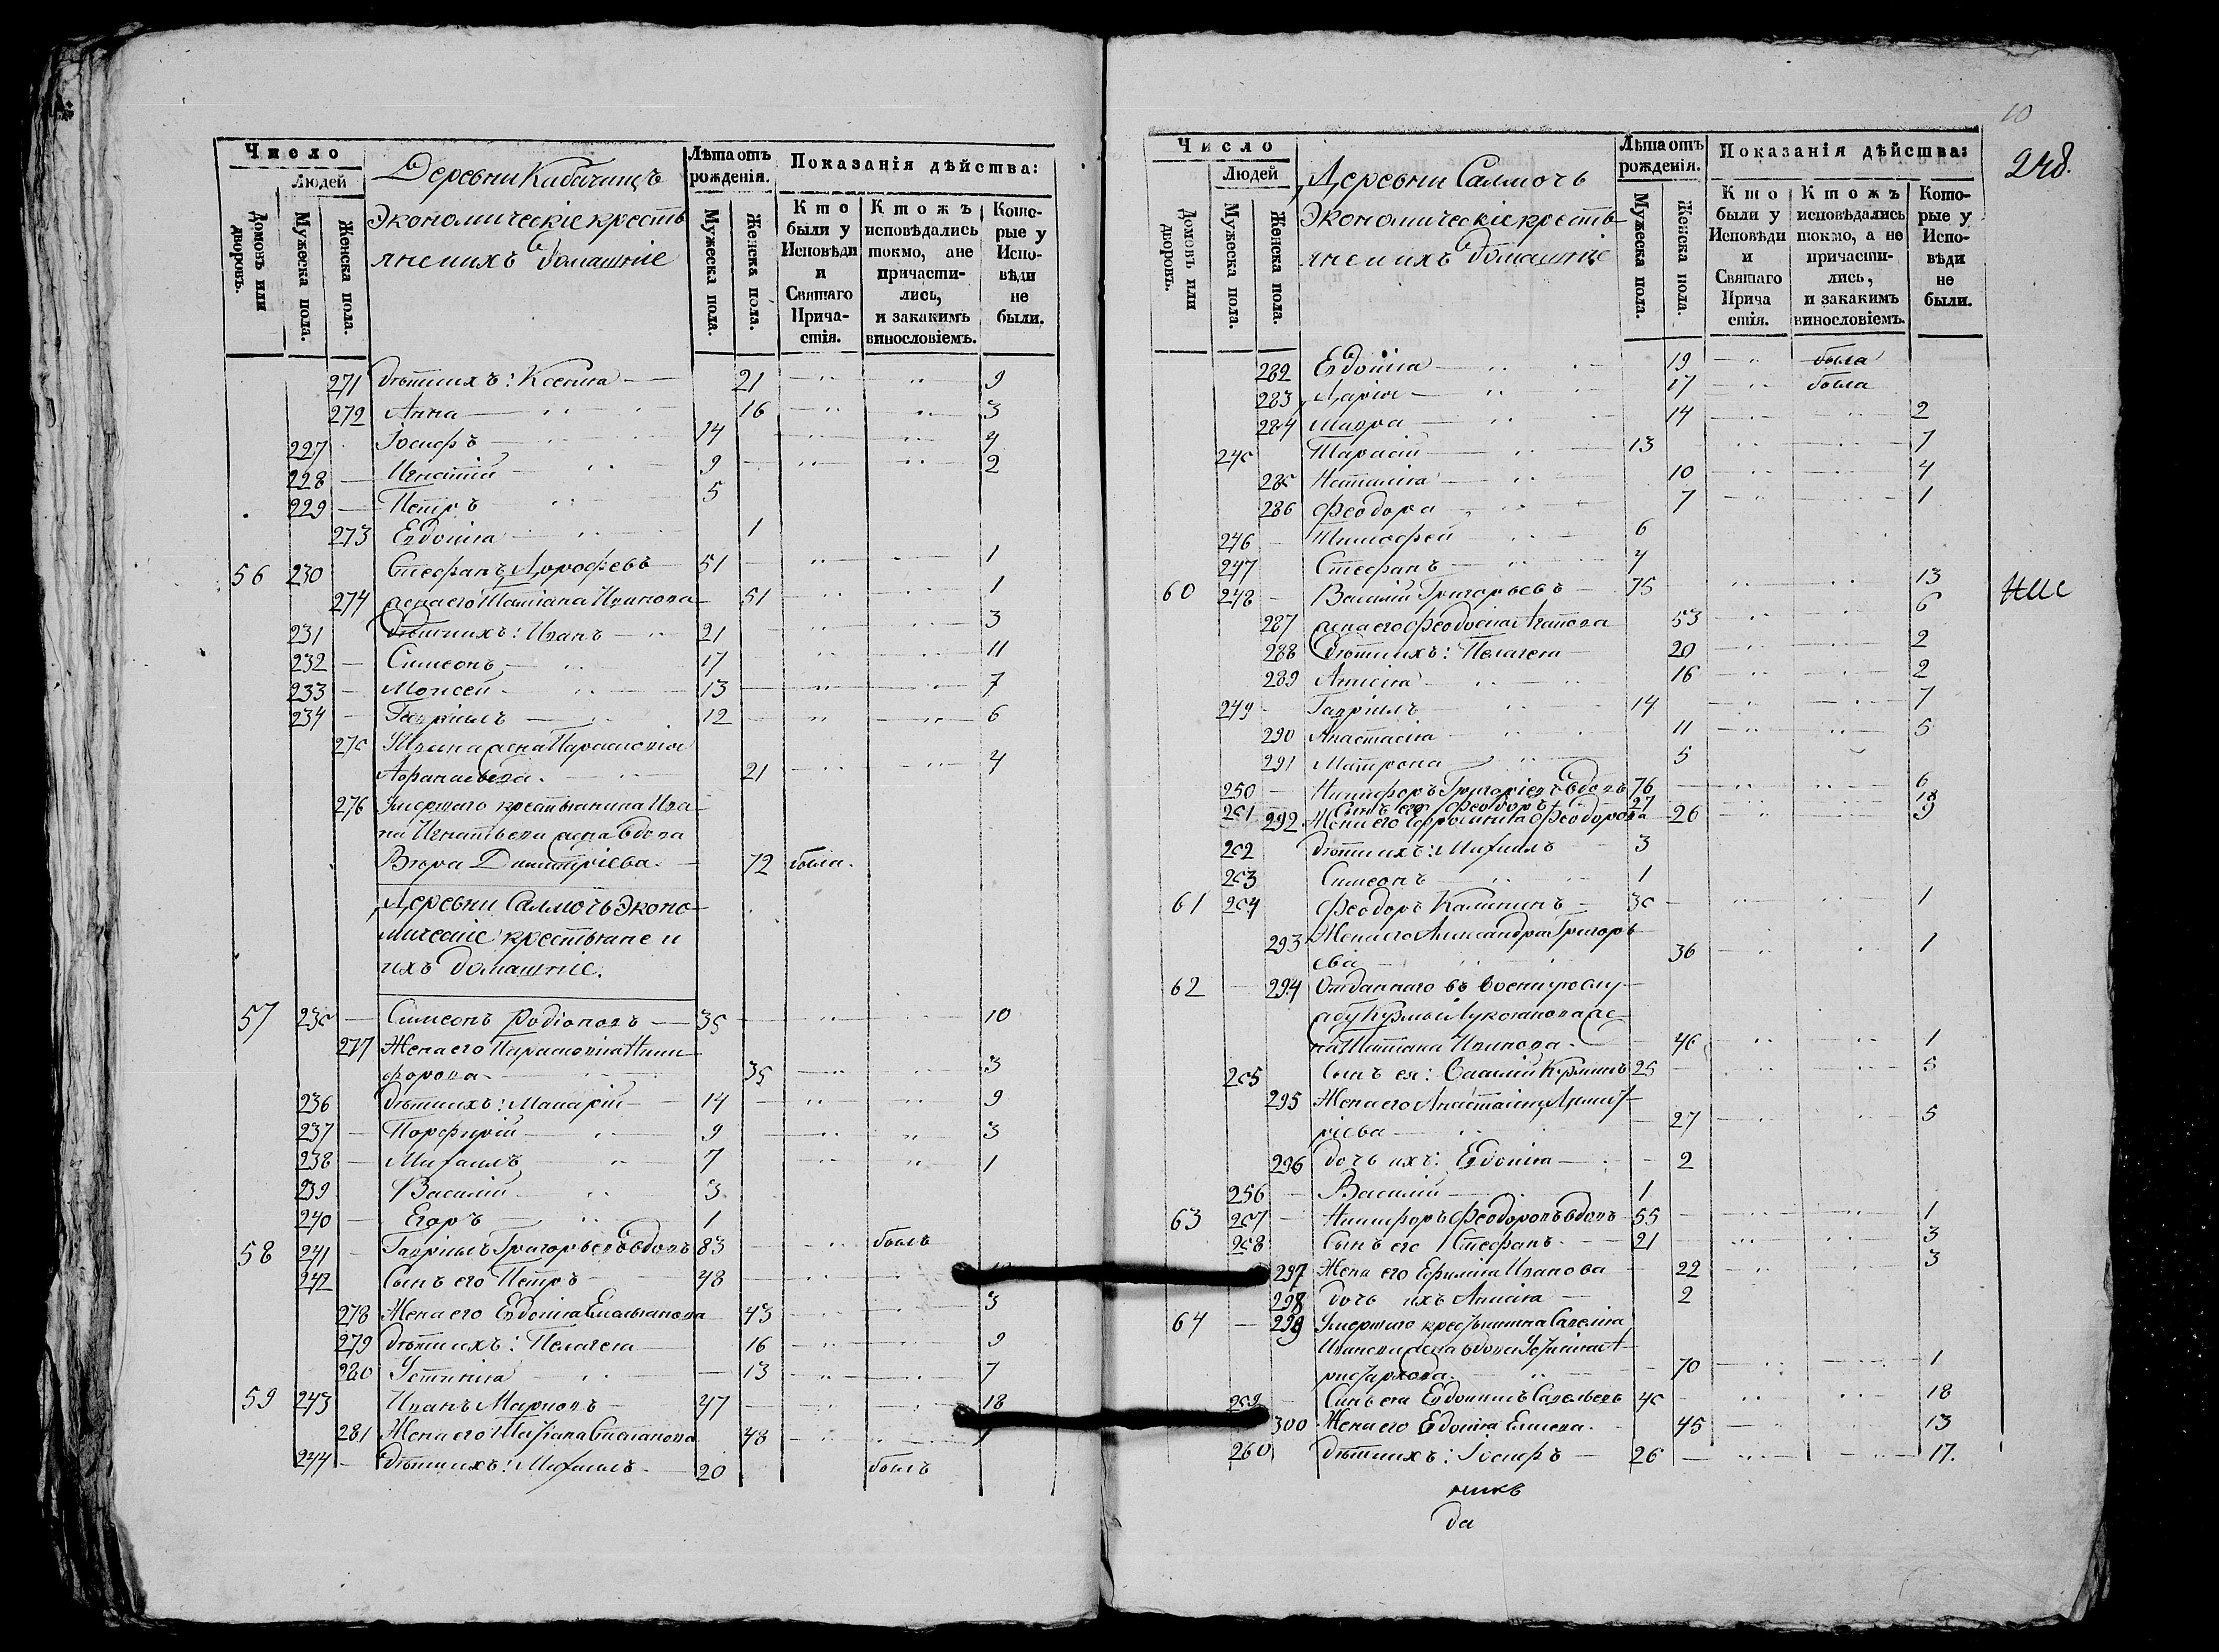 Число
Людей
Домовъ или дворовъ.
Мужеска пола.
Женска пола.
Деревни Кибачинсъ
Экономическіе кресть
яне и ихъ домашніе
Лѣта отъ рожденія.
Мужеска пола.
Женска пола.
Показанія дѣйства:
Кто были у Исповѣди и Святаго Прича- стія.
Ктожъ исповѣдались токмо, а не причасти- лись, и закакимъ винословіемъ.
Кото- рые у Испо- вѣди не были.
271 дѣти ихъ: Ксенія 21 9
272 Анна 16 3
227 Іосифъ 14 4
228 Игнатій 9 2
229 Петръ 5
273 Евдокіа 1
56 230 Стефанъ Дорофеевъ 51 1
274 жена его Татіана Иванова 51 1
231 дѣти ихъ: Иванъ 21 3
232 Симеонъ 17 11
233 Моисей 13 7
234 Гавріилъ 12 6
275 Ивана жена Парасковіа
Афанасьева. 21 4
276 Умершаго крестьянина Ива
на Игнатьева жена вдова
Вѣра Димитріева. 72 была.
Деревни Салмочь Эконо
мическіе крестьяне и
ихъ домашніе.
57 235 Симеонъ Родіоновъ 35 10
277 Жена его Парасковіа Ники
форова 35 3
236 дѣти ихъ: Макарій 14 9
237 Порфирій 9 3
238 Михаилъ 7 1
239 Василій 3
240 Егоръ 1
58 241 Гавріилъ Григорьевъ вдовъ 83 былъ
242 Сынъ его Петръ 48
278 Жена его Евдокіа Емельянова 43 3
279 дѣти ихъ: Пелагеia 16 9
280 Устиніа 13 7
59 243 Иванъ Марковъ 47 18
281 Жена его Татіана Степанова 48
244 дѣти ихъ: Михаилъ 20 былъ
10
248.
Число
Людей
Домовъ или дворовъ.
Мужеска пола.
Женска пола.
Деревни Салмочь
Экономическіе кресть
яне и ихъ домашніе
Лѣта отъ рожденія.
Мужеска пола.
Женска пола.
Показанія дѣйства:
Кто были у Исповѣди и Святаго Прича стія.
Ктожъ исповѣдались токмо, а не причасти- лись, и закакимъ винословіемъ.
Кото- рые у Испо- вѣди не были.
282 Евдокіа 19 была
283 Дарія 17 была
284 Мавра 14 2
245 Тарасій 13 7
285 Наталіа 10 4
286 Феодора 7 1
246 Тимофей 6
247 Стефанъ 4
60 248 Василій Григорьевъ 75 13
287 жена его Феодосіа Агапова 53 6
288 дѣти ихъ: Пелагеia 20 2
289 Анисіа 16 2
249 Гавріилъ 14 7
290 Анастасіа 11 5
291 Матрона 5
250 Никифоръ Григорьевъ вдовъ 76 6
251 Сынъ его Феодоръ 27 18
292 Жена его Ефросиніа Феодорова 26 9
252 дѣти ихъ: Михаилъ 3
253 Симеонъ 1
61 254 Феодоръ Калининъ 35 1
293 Жена его Александра Григорь
ева 36 1
62 294 Отданнаго въ военную слу
жбу Кузьмы Лукоянова же
на Татіана Иванова. 46 1
255 Сынъ ея: Василій Кузминъ 25 5
295 Жена его Анастасіа Димит
ріева 27 5
296 дочь ихъ: Евдокіа 2
256 Василій 1
63 257 Никифоръ Феодоровъ вдовъ 55 1
258 Сынъ его Стефанъ 21 3
297 Жена его Ефиміа Иванова 22 3
298 дочь ихъ Анисіа 2
64 299 Умершаго крестьянина Савеліа
Иванова жена вдова
70 1
259 Сынъ ея Евдокимъ Савельевъ 45 18
300 Жена его Евдокіа Елиева. 45 13
260 дѣти ихъ: Іосифъ 26 17.
никъ
да